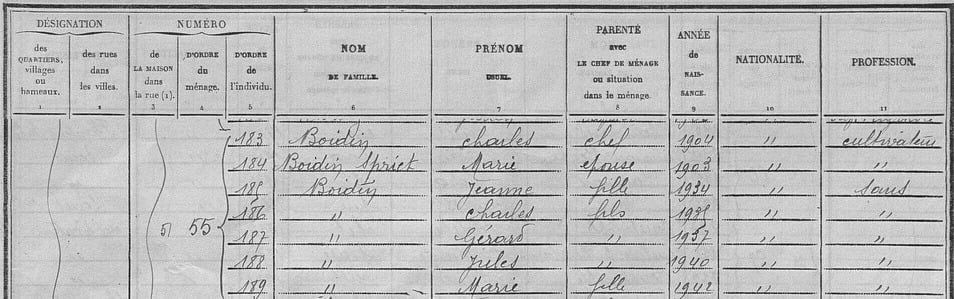 DÉSIGNATION NUMÉRO
des QUARTIERS, villages ou hameaux. des rues dans les villes. de LA MAISON dans la rue (1). D'ORDRE du ménage. D'ORDRE de l'individu. NOM DE FAMILLE. PRÉNOM USUEL. PARENTÉ avec LE CHEF DE MÉNAGE ou situation dans le ménage. ANNÉE de NAIS- SANCE. NATIONALITÉ. PROFESSION.
1 2 3 4 5 6 7 8 9 10 11
183 Boidin charles chef 1904 " cultivateur
184 Boidin Spriet Marie epouse 1903 " "
185 Boidin Jeanne fille 1934 " sans
186 " charles fils " "
51 55 187 " Gérard " 1937 " "
188 " Jules " 1940 " "
189 " Marie fille 1942 " "